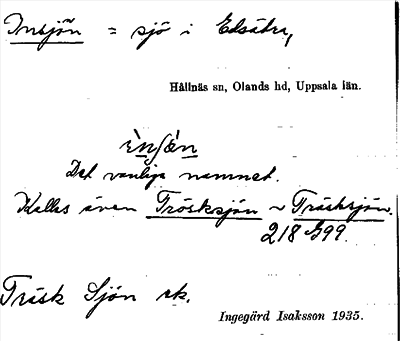 Insjön = sjö i Edsätra,
Hållnäs sn, Olands hd, Uppsala län.
Det vanliga namnet.
Kallas även Trösksjön ~ Träsksjön.
218 G99.
Träsk Sjön sk.
Ingegärd Isaksson 1935.